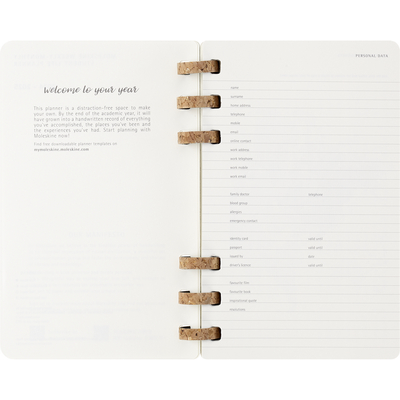 welcome to your year
This planner is a distraction-free space to make
your own. By the end of the academic year, it will
have grown into a handwritten record of everything
you've accomplished, the places you've been and
the experiences you've had. Start planning with
Moleskine now!
Find free downloadable planner templates on
mymoleskine.moleskine.com
PERSONAL DATA
name
surname
home address
telephone
mobile
email
online contact
work address
work telephone
work mobile
work email
family doctor telephone
blood group
allergies
emergency contact
identity card valid until
passport valid until
driver's licence valid until
favourite film
favourite book
inspirational quote